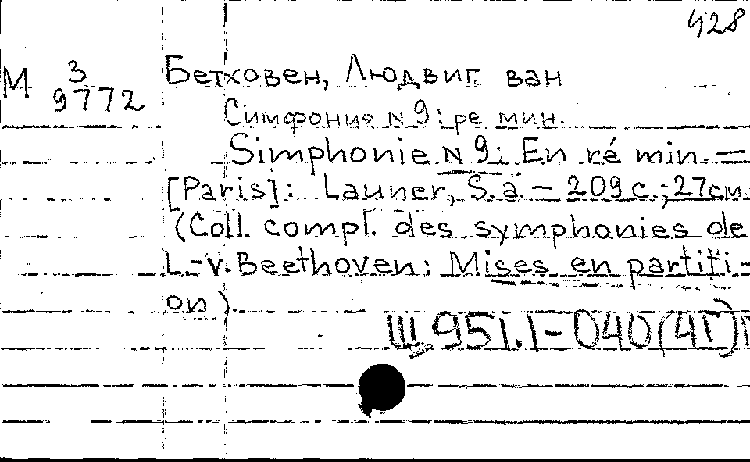 428
М 3 Бетховен, Людвиг ван
9772
Симфония N 9: ре мин.
Simphonie N 9: En ré min. =
[Paris]: Launer, S. a – 209 с.; 27см.
(Coll. compl. des symphonies de
L.-v. Beethoven: Mises en partiti-
on).
Ш 951.1-040(4Г)